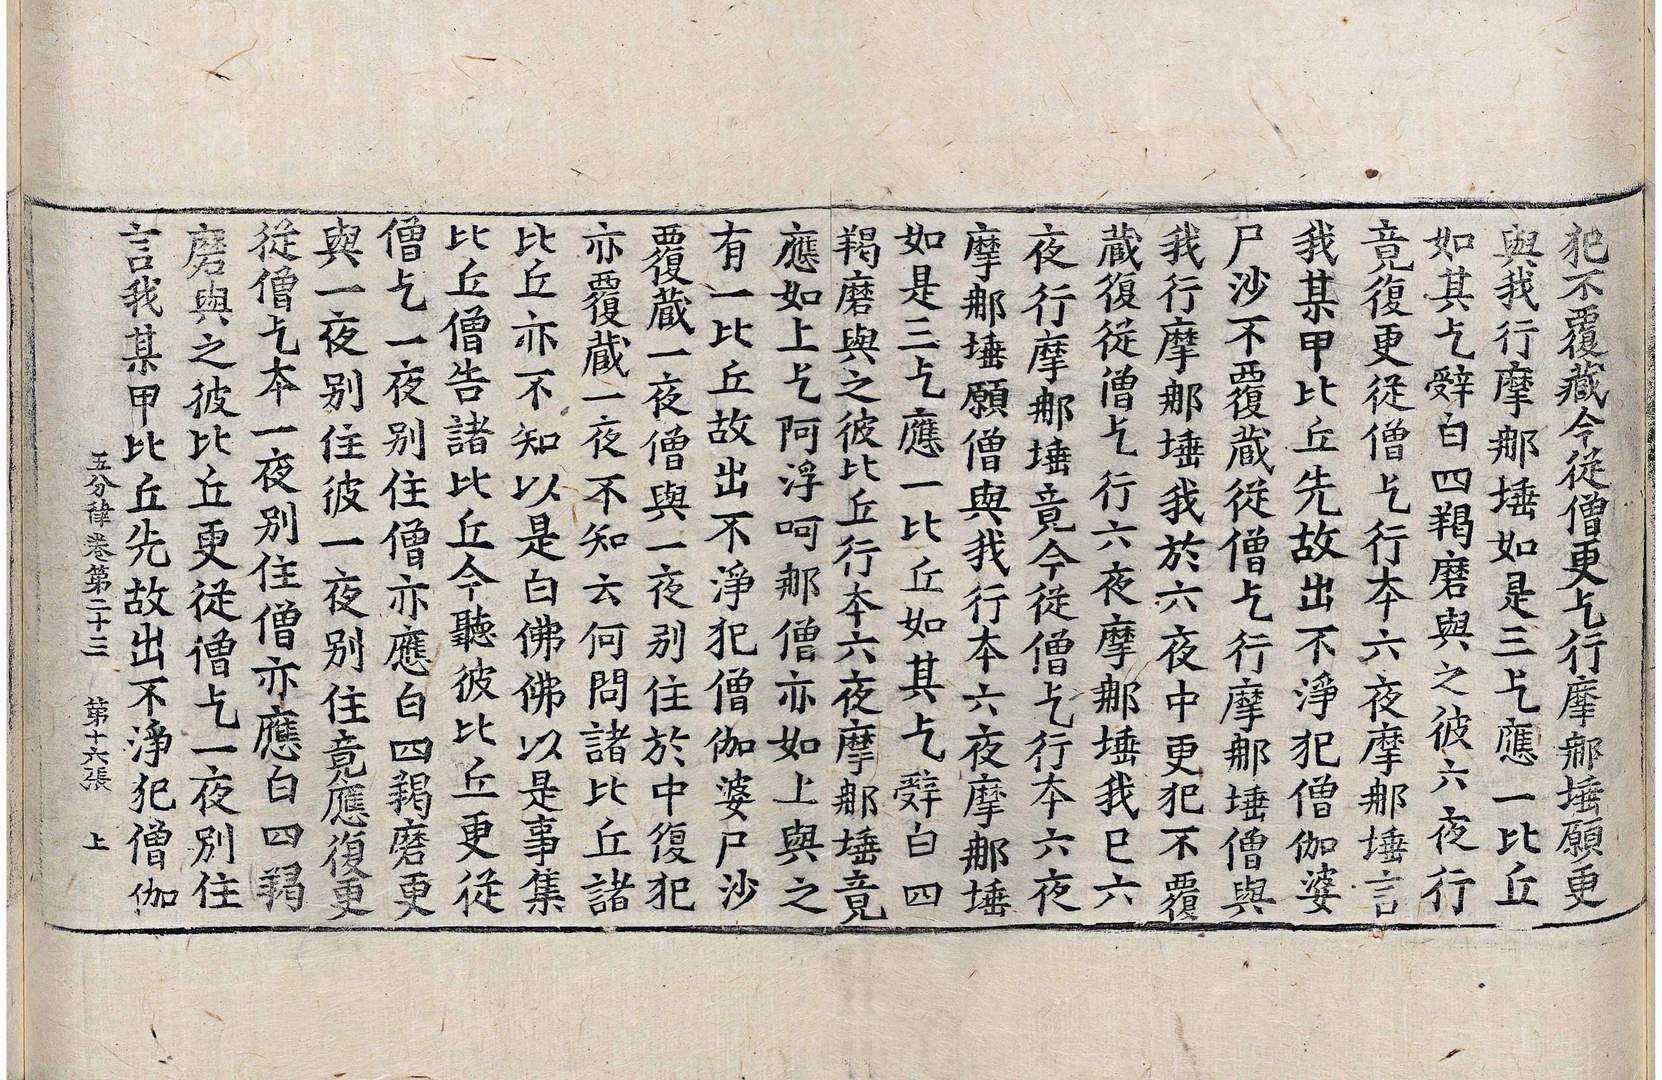 犯不覆藏今從僧更乞行摩那埵願更
與我行摩那埵如是三乞應一比丘
如其乞辤白四羯磨與之彼六夜行
竟復更從僧乞行夲六夜摩那埵言
我某甲比丘先故出不淨犯僧伽婆
尸沙不覆藏從僧乞行摩那埵僧與
我行摩那埵我於六夜中更犯不覆
藏復從僧乞行六夜摩那埵我已六
夜行摩那埵竟今從僧乞行夲六夜
摩那埵願僧與我行夲六夜摩那埵
如是三乞應一比丘如其乞辤白四
羯磨與之彼比丘行夲六夜摩那埵竟
應如上乞阿浮呵那僧亦如上與之
有一比丘故出不淨犯僧伽婆尸沙
覆藏一夜僧與一夜別住於中復犯
亦覆藏一夜不知云何問諸比丘諸
比丘亦不知以是白佛佛以是事集
比丘僧告諸比丘今聽彼比丘更從
僧乞一夜別住僧亦應白四羯磨更
與一夜別住彼一夜別住竟應復更
從僧乞夲一夜別住僧亦應白四羯
磨與之彼比丘更從僧乞一夜別住
言我某甲比丘先故出不淨犯僧伽
五分律卷第二十三 第十六張 上